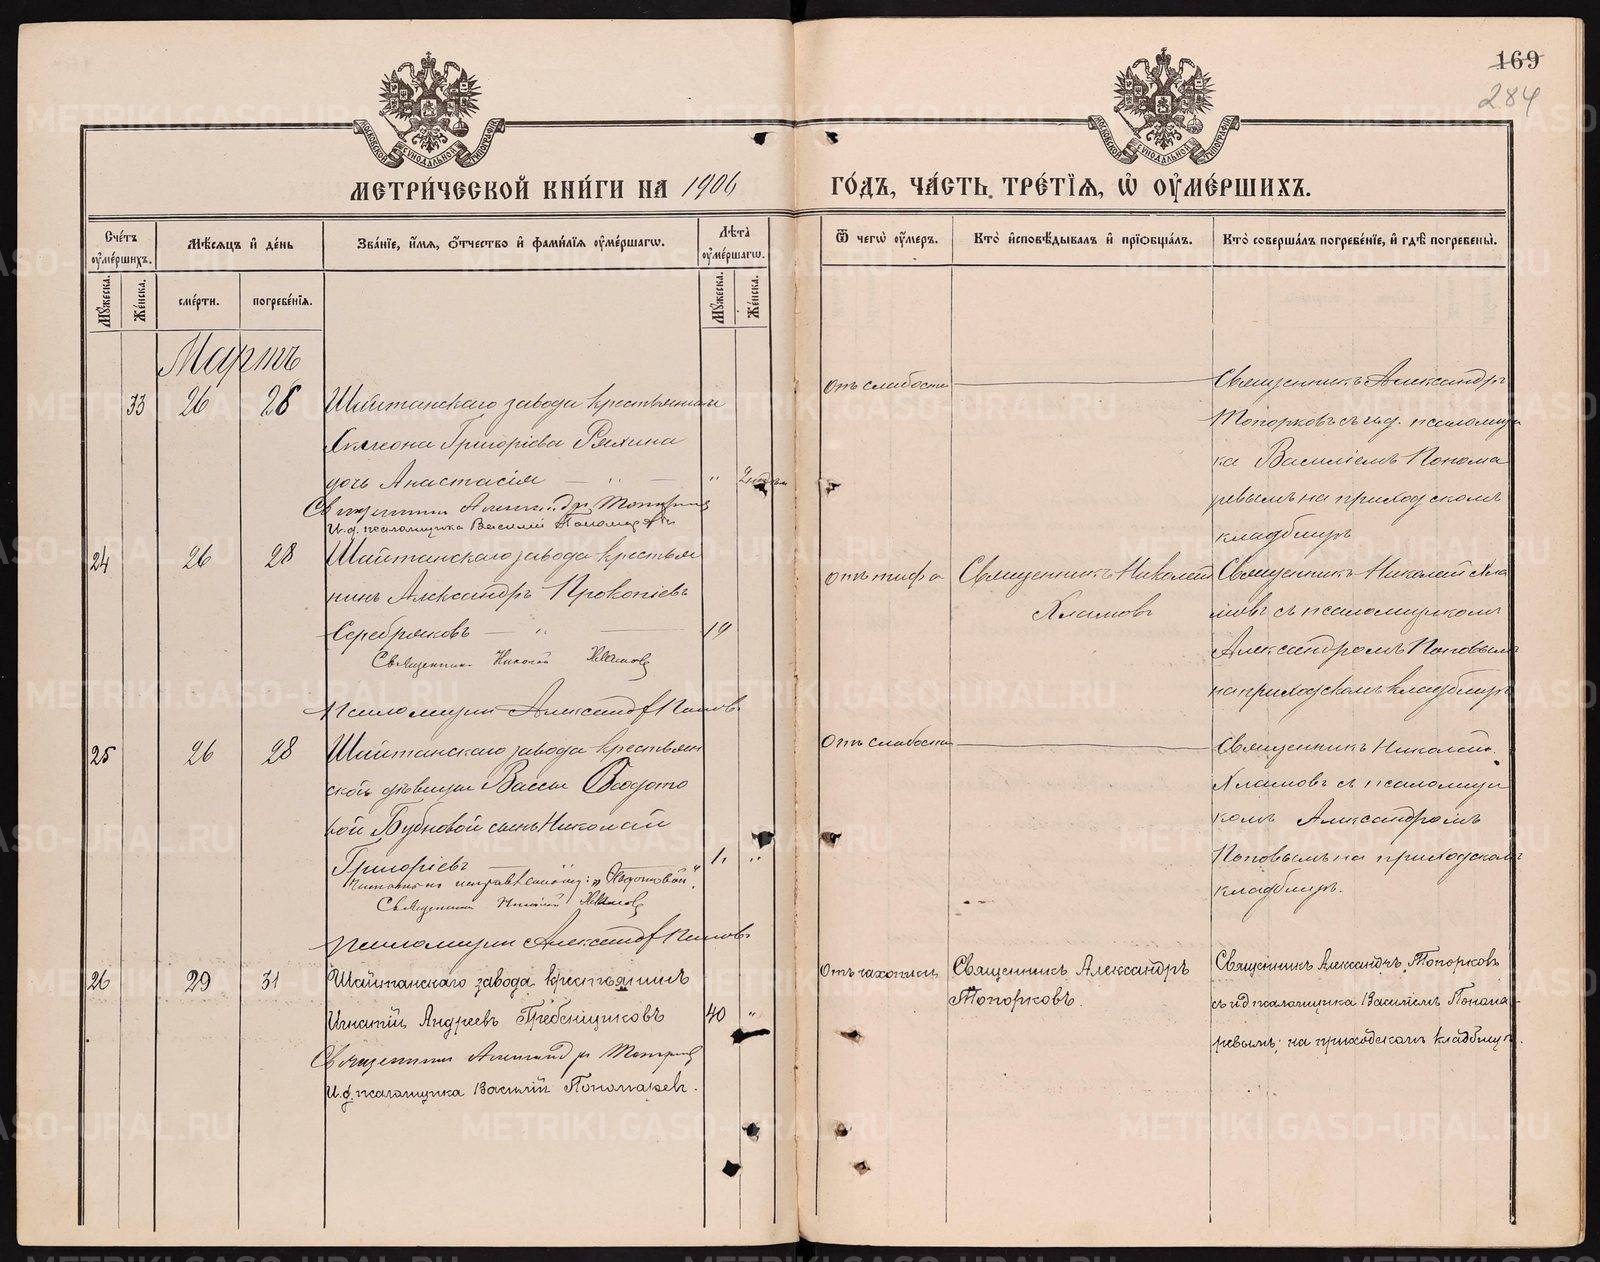 169
284
МОСКОВСКОЙ СѴНОДАЛЬНОЙ ТИПОГРАФІИ
МОСКОВСКОЙ СѴНОДАЛЬНОЙ ТИПОГРАФІИ
МЕТРИ́ЧЕСКОЙ КНИ́ГИ НА 1906
ГО́ДЪ, ЧА́СТЬ ТРЕ́ТІѦ, Ѡ҆ ОУ҆МЕ́РШИХЪ.
Сче́тъ оу҆ме́ршихъ.
Мѣ́сяцъ и҆ де́нь
Зва́нїе, и҆́мя, ѻ҆́тчество и҆ фами́лїя оу҆ме́ршагѡ.
Лѣ́та оу҆ме́ршагѡ.
Ѿ чегѡ̀ оу҆́меръ.
Кто̀ и҆сповѣ́дывалъ и҆ прїѡбща́лъ.
Кто̀ соверша́лъ погребе́нїе, и҆ гдѣ̀ погребены̀.
Мꙋ́жеска.
Же́нска.
сме́рти.
погребе́нїя.
Мꙋ́жеска.
Же́нска.
Мартъ
33 26 28 Шайтанскаго завода крестьянина
Григоріева Ряхина
дочь Анастасія — „ — „ 2
Священникъ Александръ Топорковъ
И.д. псаломщика Василій Пономаревъ
отъ слабости
Священникъ Александръ
Топорковъ съ и.д. псаломщи
ка Василіемъ Понома
ревымъ на приходскомъ
кладбищѣ
24 26 28 Шайтанскаго завода крестья
нинъ Александръ Прокопіевъ
Серебряковъ — „ — 19
Священникъ Николай Хламовъ
Псаломщикъ Александръ Поповъ
отъ тифа
Священникъ Николай
Хламовъ
Священникъ Николай Хла
мовъ съ псаломщикомъ
Александромъ Поповымъ
на приходскомъ кладбищѣ
25 26 28 Шайтанскаго завода крестьян
ской дѣвицы Вассы
вой Бубновой сынъ Николай
Григорьевъ 1 „
исправленному: „Ѳедотовой“.
Священникъ Николай Хламовъ
Псаломщикъ Александръ Поповъ
Отъ слабости
Священникъ Николай
Хламовъ съ псаломщи
комъ Александромъ
Поповымъ на приходскомъ
кладбищѣ.
26 29 31 Шайтанскаго завода крестьянинъ
Игнатій Андреевъ Гребенщиковъ 40 „
Священникъ Александръ Топорковъ
И.д. псаломщика Василій Пономаревъ.
Отъ чахотки
Священникъ Александръ
Топорковъ.
Священникъ Александръ Топорковъ
съ и.д. псаломщика Василіемъ Понома-
ревымъ; на приходскомъ кладбищѣ.
METRIKI.GASO-URAL.RU